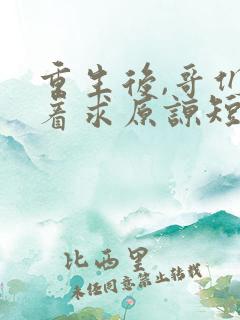 重生後,哥
着求原諒短
比西里
未任同意禁止转载